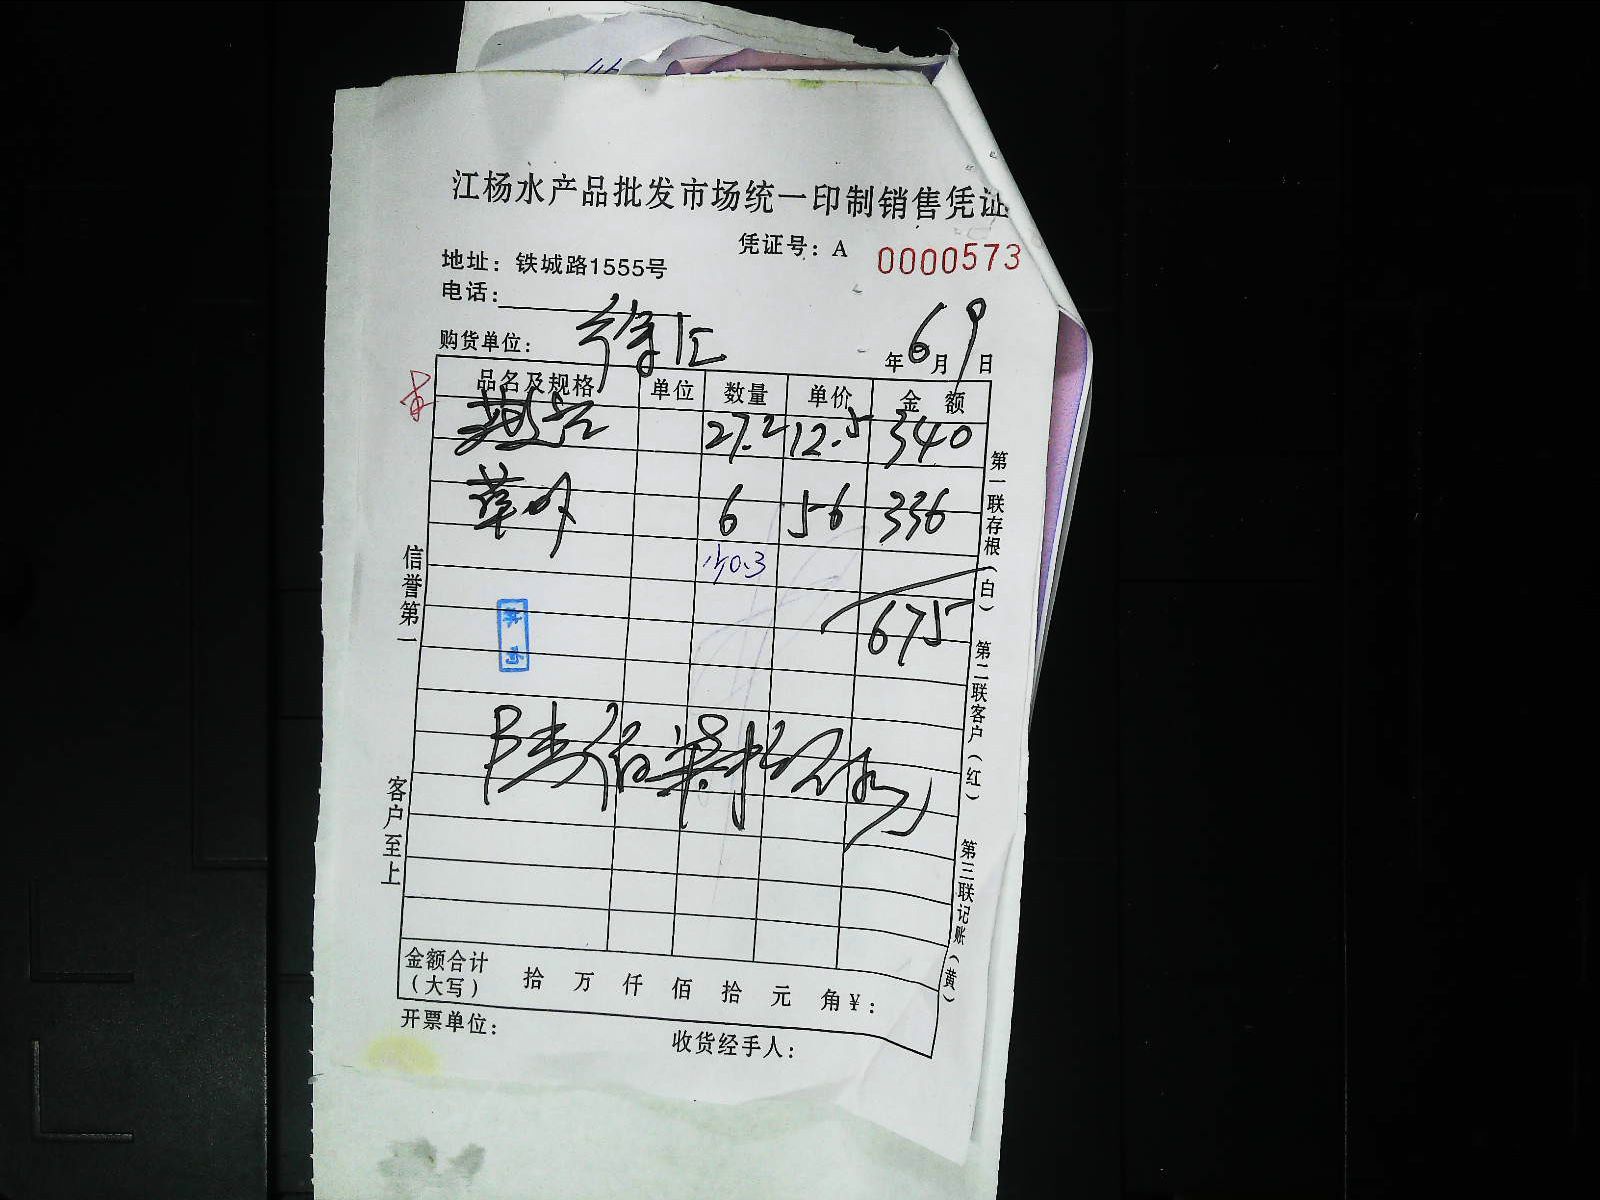 江杨水产品批发市场统一印制销售凭证
凭证号：A 0000573
地址：铁城路1555号
电话：
购货单位：徐汇 年6月9日
品名及规格 单位 数量 单价 金额
27.2 12.5 340
6 56 336
675
陆佰柒拾
金额合计（大写） 拾 万 仟 佰 拾 元 角 ¥：
开票单位： 收货经手人：
信誉第一
客户至上
第一联存根（白）
第二联客户（红）
第三联记账（黄）